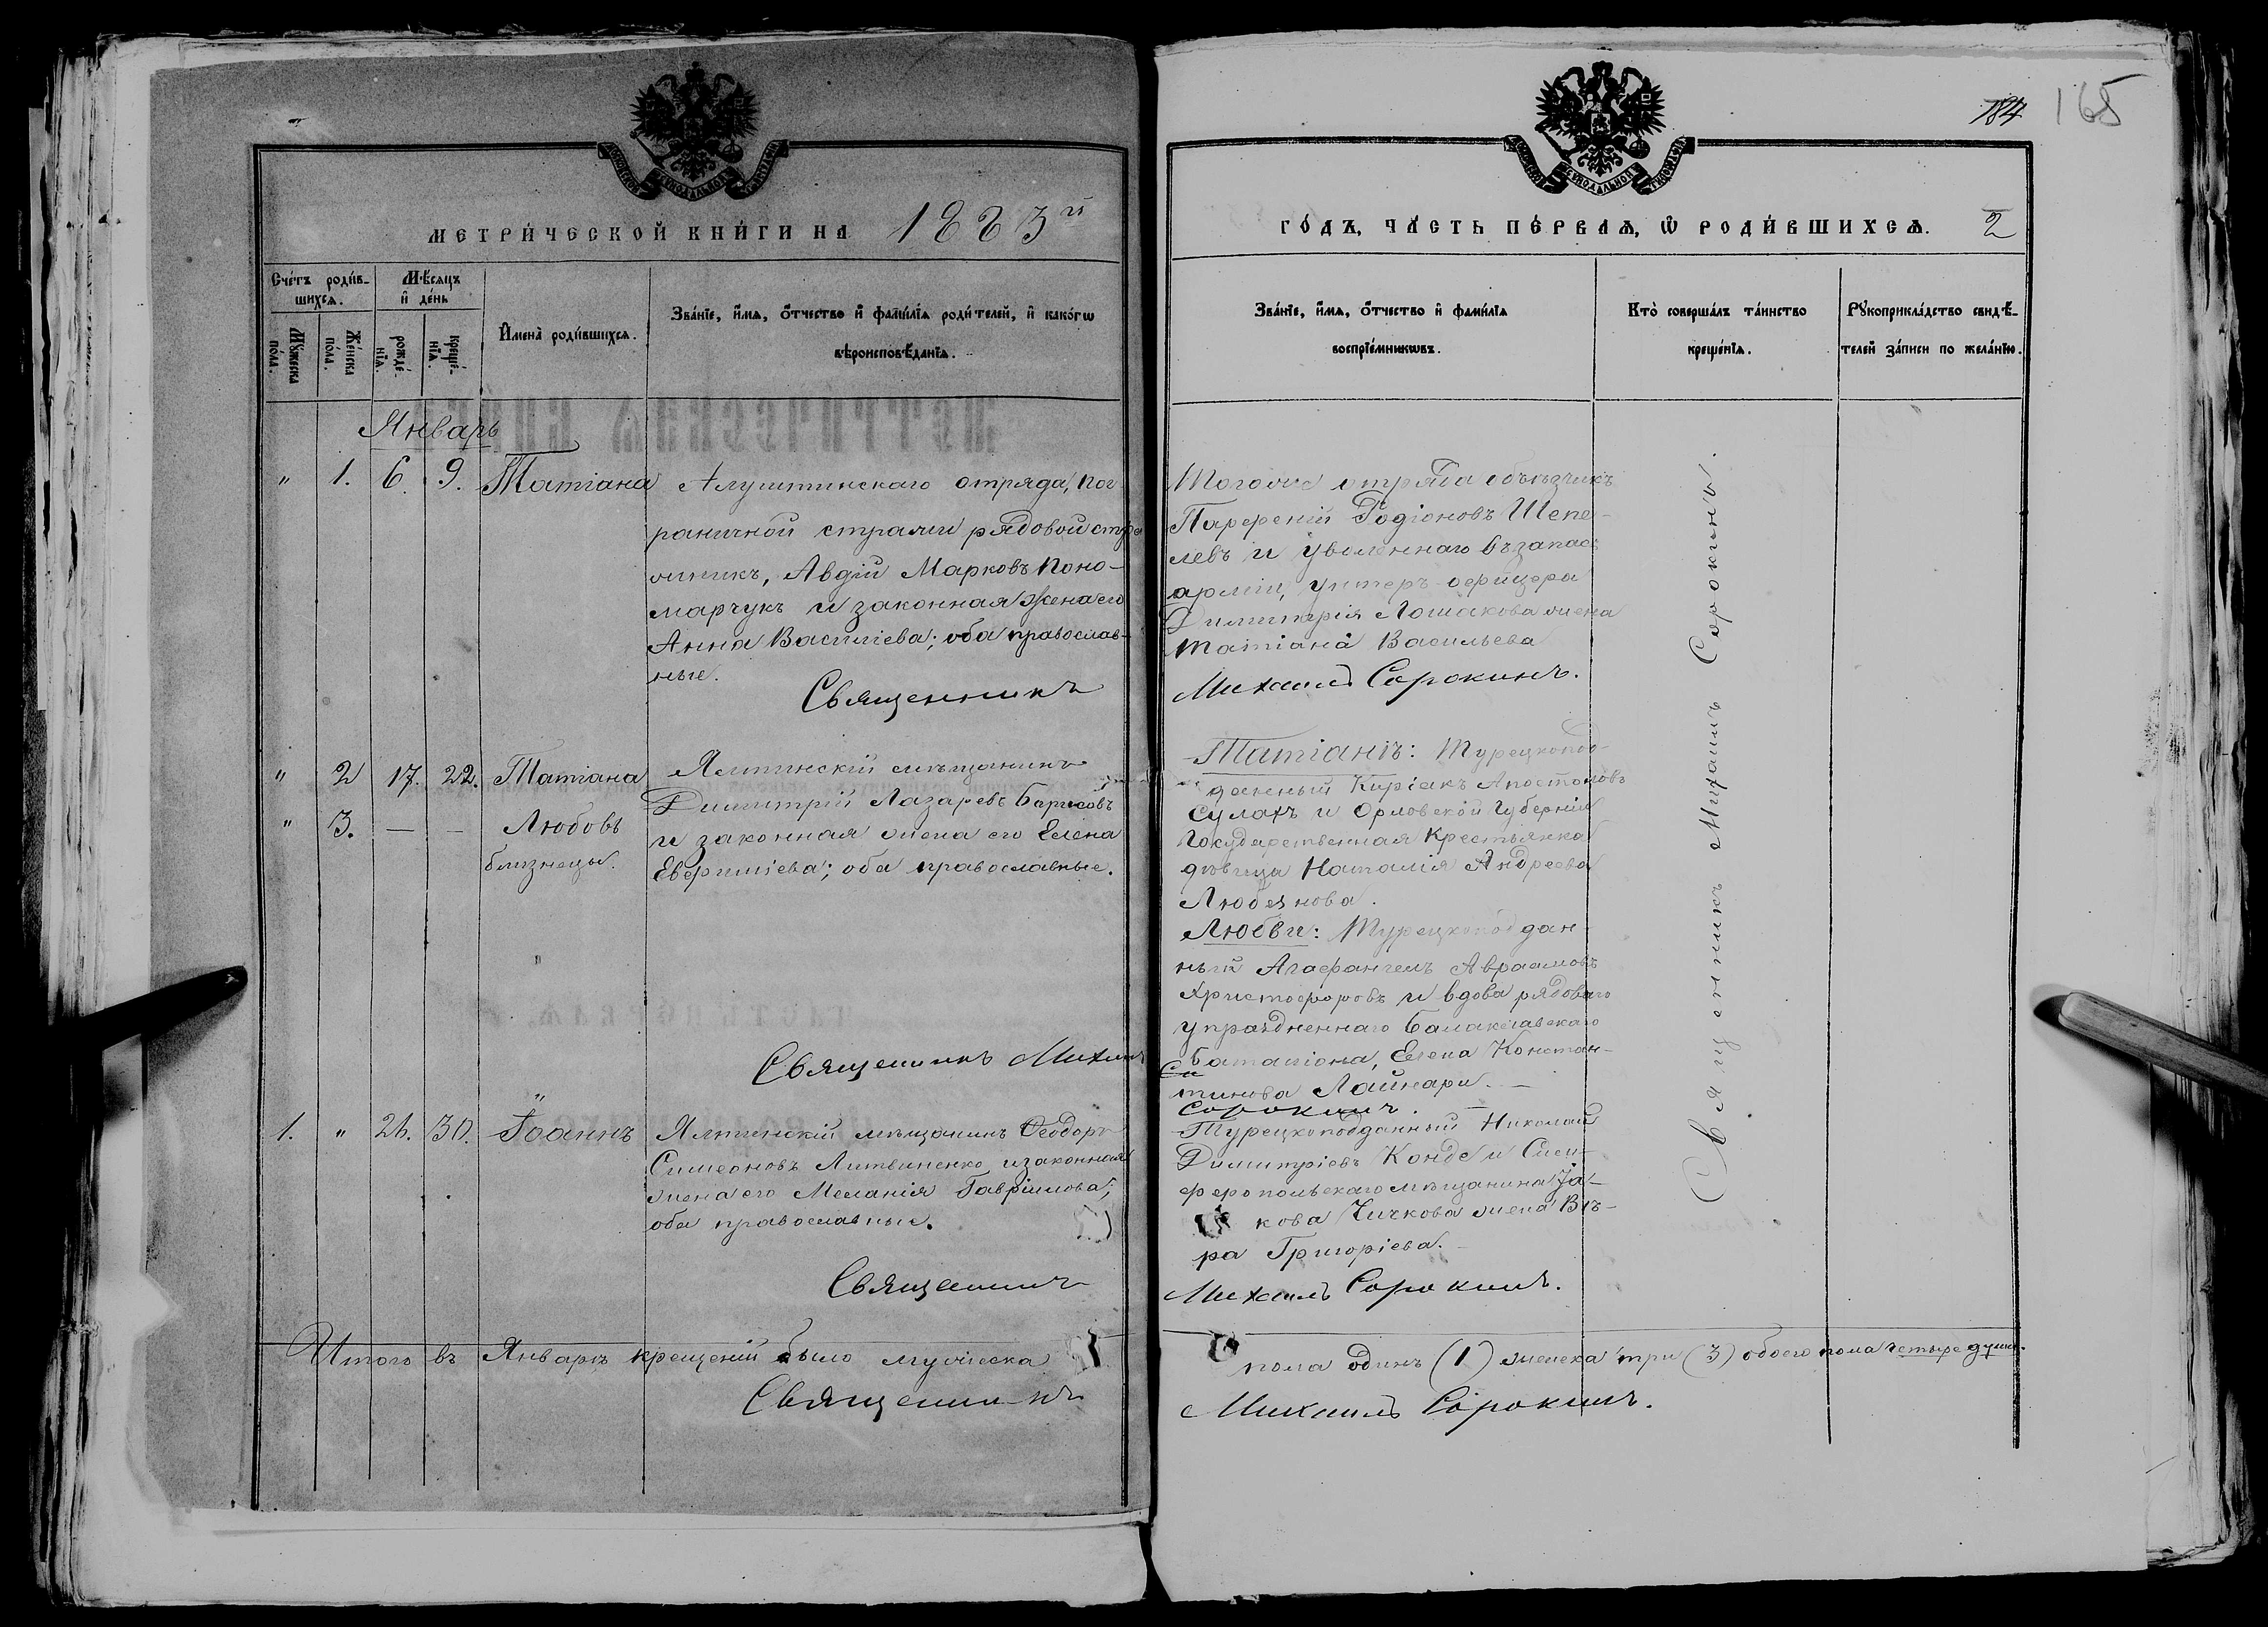 184 165
МЕТРИ́ЧЕСКОЙ КНИ́ГИ НА 1883 й
ГО́ДЪ, ЧА́СТЬ ПЕ́РВАѦ, Ѡ РОДИ́ВШИХСѦ. 2
Сче́тъ роди́в-
шихсѧ.
Мꙋ́жеска по́ла.
Же́нска по́ла.
Мѣ́сѧцъ
и де́нь
рожде́-
нїѧ.
креще́-
нїѧ.
Имена̀ роди́вшихсѧ.
Зва́нїе, и́мѧ, о́тчество и фами́лїѧ роди́телей, и како́гѡ
вѣроисповѣ́данїѧ.
Зва́нїе, и́мѧ, о́тчество и фами́лїѧ
воспрїе́мникѡвъ.
Кто̀ соверша́лъ та́инство
креще́нїѧ.
Рꙋкоприкла́дство свидѣ́-
телей за́писи по жела́нїю.
Январь
" 1. 6. 9. Татіана
Алуштинскаго отряда, пог
раничной стражи рядовой стра
жникъ, Авдій Марковъ Поно-
марчукъ и законная жена его
Анна Василіева; оба православ-
ные.
Священникъ
Тогоже отряда объѣздчикъ
Парфеній Родіоновъ Шепе-
левъ и уволеннаго въ запас
арміи, унтеръ-офицера
Димитрія Лошакова жена
Татіана Васильева
Михаилъ Сорокинъ.
" 2 17. 22. Татіана
" 3. — — Любовь
близнецы.
Ялтинскій мѣщанинъ
Димитрій Лазаревъ
и законная жена его Елена
оба православные.
Священникъ Михаилъ
Татіанѣ: Турецкопод-
данный Киріакъ Апостоловъ
Сулахъ и Орловской Губерніи
Государственная Крестьянка
дѣвица Наталія Андреева
Любезнова.
Любви: Турецкоподдан-
ный Агафангелъ Авраамовъ
Христофоровъ и вдова рядоваго
упраздненнаго Балаклавскаго
баталіона, Елена Констан-
тинова Лайнари. —
Сорокинъ.
1. " 26. 30. Іоаннъ
Ялтинскій мѣщанинъ Ѳеодоръ
Симеоновъ Литвиненко и законная
жена его Меланія Гавріилова;
оба православные.
Священникъ
Турецкоподданный Николай
Димитріевъ Конде и Сим-
феропольскаго мѣщанина Іа-
кова Чичкова жена Вѣ-
ра Григоріева.
Михаилъ Сорокинъ.
Священникъ Михаилъ Сорокинъ.
Итого въ Январѣ крещеній было мужеска
пола одинъ (1) женска три (3) обоего пола четыре души.
Священникъ
Михаилъ Сорокинъ.